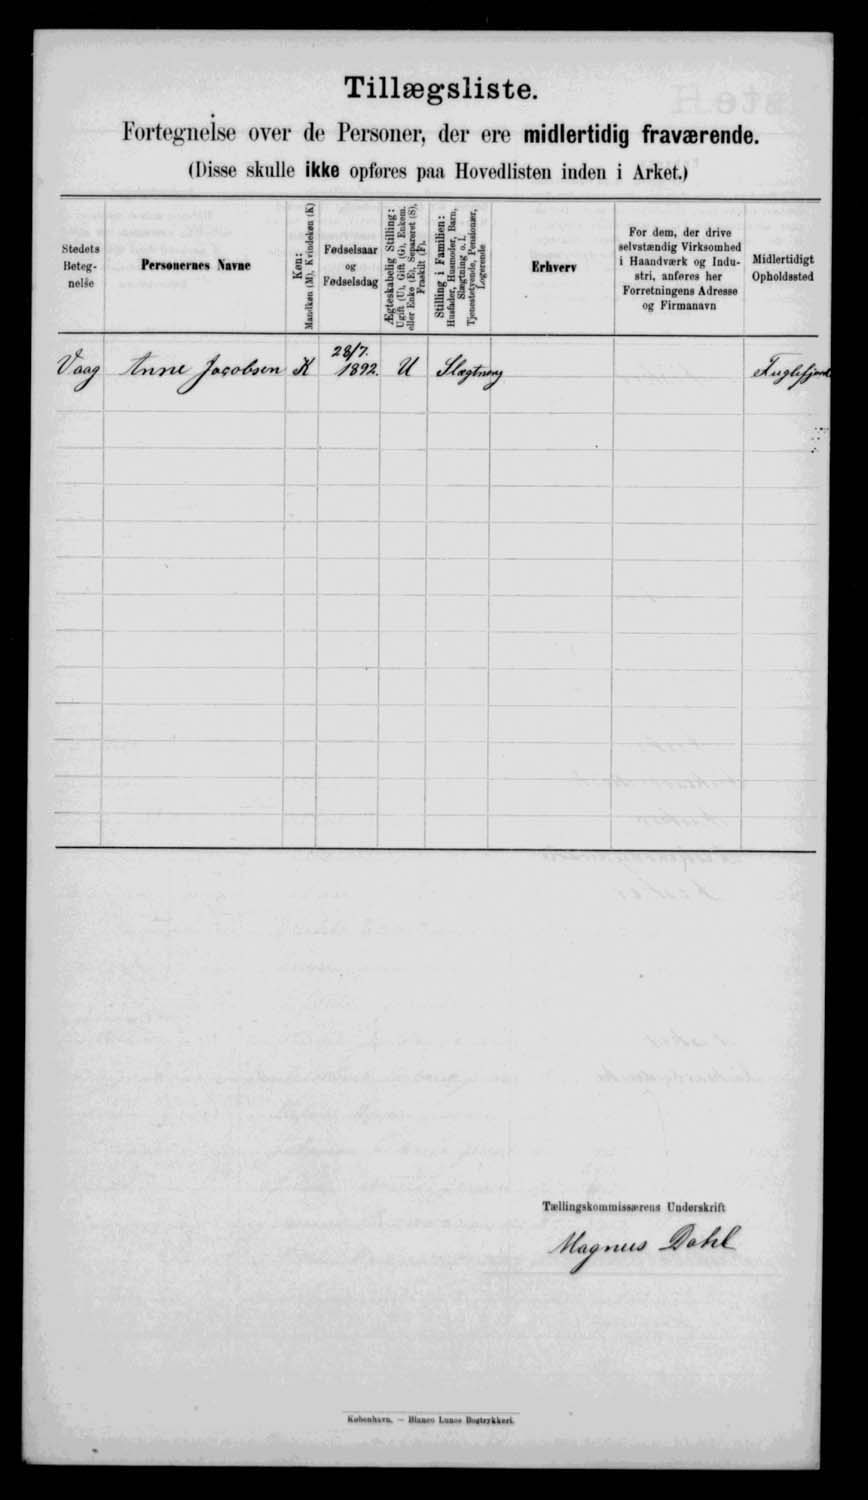 Tillægsliste.
Fortegnelse over de Personer, der ere midlertidig fraværende.
(Disse skulle ikke opføres paa Hovedlisten inden i Arket.)
Stedets
Beteg-
nelse
Personernes Navne
Køn:
Mandkøn (M), Kvindekøn (K)
Fødselsaar
og
Fødselsdag
Ægteskabelig Stilling:
Ugift (U), Gift (G), Enkem.
eller Enke (E), Separeret (S),
Fraskilt (F).
Stilling i Familien:
Husfader, Husmoder, Barn,
Slægtning o. l.
Tjenestetyende, Pensionær,
Logerende
Erhverv
For dem, der drive
selvstændig Virksomhed
i Haandværk og Indu-
stri, anføres her
Forretningens Adresse
og Firmanavn
Midlertidigt
Opholdssted
Vaag Anne Jacobsen K 28/7. 1892. U Slægtning Fuglefjord
Tællingskommissærens Underskrift
Magnus Dahl
København. — Bianco Lunos Bogtrykkeri.